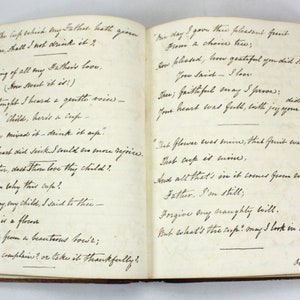 The cup which my Father hath given
me, shall I not drink it?
ing of all my Father's love,
(How sweet it is!)
night I heard a gentle voice —
child, here's a cup
mixed it — drink it up."
heart did sink I could no more rejoice.
dost Thou love thy child?
why this cup?
my child, I said to thee —
is a flower
from a beauteous bower;
complain? or take it thankfully?
One day I gave thee pleasant fruit
From a choice tree;
How pleased, how grateful you did
You said — I love
Thee; faithful may I prove;
Your heart was full, with joy your
did
That flower was mine, that fruit was
That cup is mine.
And all that's in it comes from
Father, I'm still;
Forgive my naughty will.
But what's the cup? may I look in